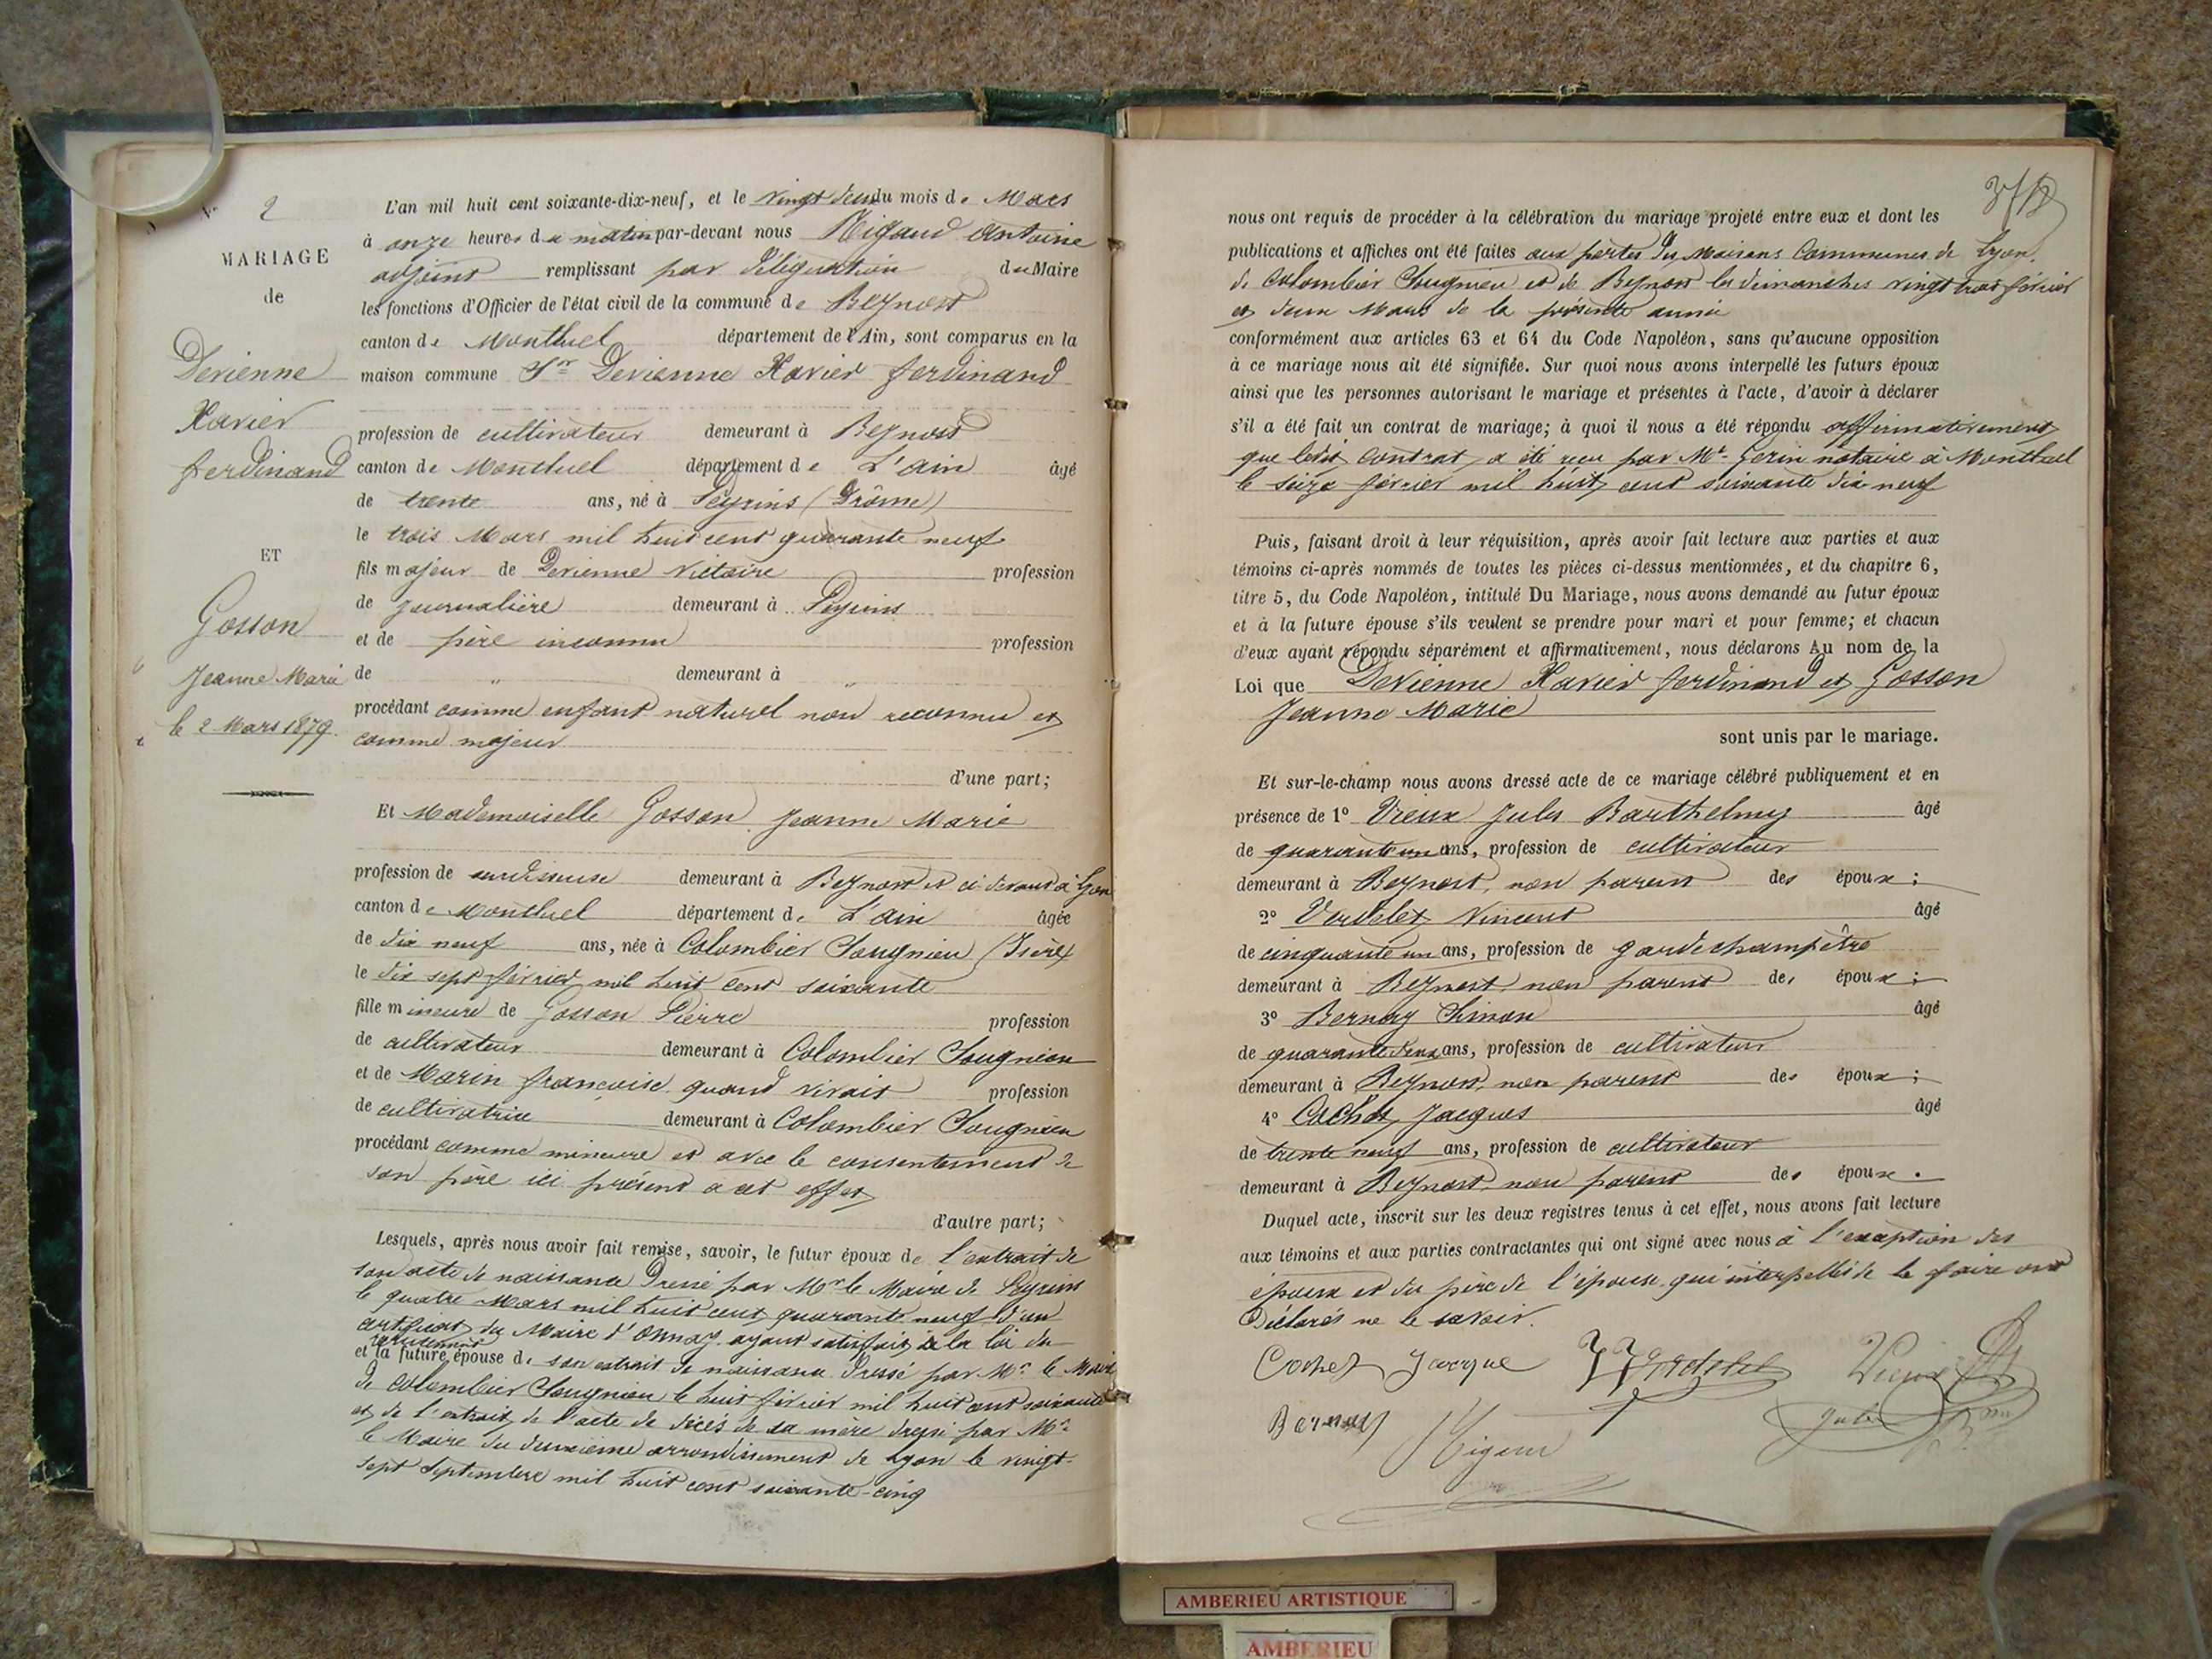 2
MARIAGE
de
Devienne
Xavier
ferdinand
ET
Gosson
Jeanne Marie
le 2 Mars 1879.
L'an mil huit cent soixante-dix-neuf, et le vingt deux du mois de Mars
à onze heures du matin par-devant nous Rigaud Antoine
adjoint remplissant par délégation du Maire
les fonctions d'Officier de l'état civil de la commune de Beynost
canton de Montluel département de l'Ain, sont comparus en la
maison commune Sr Devienne Xavier ferdinand
profession de cultivateur demeurant à Beynost
canton de Montluel département de L'ain âgé
de trente ans, né à Peyrins (Drôme)
le trois Mars mil huit cent quarante neuf
fils majeur de Devienne Victoire profession
de journalière demeurant à Peyrins
et de père inconnu profession
de " demeurant à "
procédant comme enfant naturel non reconnu et
comme majeur
d'une part;
Et Mademoiselle Gosson Jeanne Marie
profession de ourdisseuse demeurant à Beynost et ci devant à Lyon
canton de Montluel département de L'ain âgée
de dix neuf ans, née à Colombier Saugnieu (Isère)
le dix sept février mil huit cent soixante
fille mineure de Gosson Pierre profession
de cultivateur demeurant à Colombier Saugnieu
et de Marin françoise quand vivait profession
de cultivatrice demeurant à Colombier Saugnieu
procédant comme mineure et avec le consentement de
son père ici présent a cet effet
d'autre part;
Lesquels, après nous avoir fait remise, savoir, le futur époux de l'extrait de
son acte de naissance dressé par Mr le Maire de Peyrins
le quatre Mars mil huit cent quarante neuf d'un
certificat du Maire d' ayant satisfait à la loi du
recrutement
et la future épouse de son extrait de naissance dressé par Mr le Maire
de Colombier Saugnieu le huit février mil huit cent soixante
et de l'extrait de l'acte de décès de sa mère dressé par Mr
le Maire du deuxième arrondissement de Lyon le vingt-
sept septembre mil huit cent soixante-cinq
nous ont requis de procéder à la célébration du mariage projeté entre eux et dont les
publications et affiches ont été faites aux portes des Maisons Communes de Lyon.
de Colombier Saugnieu et de Beynost les dimanches vingt trois février
et deux Mars de la présente année
conformément aux articles 63 et 64 du Code Napoléon, sans qu'aucune opposition
à ce mariage nous ait été signifiée. Sur quoi nous avons interpellé les futurs époux
ainsi que les personnes autorisant le mariage et présentes à l'acte, d'avoir à déclarer
s'il a été fait un contrat de mariage; à quoi il nous a été répondu affirmativement
que ledit contrat a été reçu par Me Gerin notaire à Montluel
le seize février mil huit cent soixante dix neuf
Puis, faisant droit à leur réquisition, après avoir fait lecture aux parties et aux
témoins ci-après nommés de toutes les pièces ci-dessus mentionnées, et du chapitre 6,
titre 5, du Code Napoléon, intitulé Du Mariage, nous avons demandé au futur époux
et à la future épouse s'ils veulent se prendre pour mari et pour femme; et chacun
d'eux ayant répondu séparément et affirmativement, nous déclarons Au nom de la
Loi que Devienne Xavier ferdinand et Gosson
Jeanne Marie
sont unis par le mariage.
Et sur-le-champ nous avons dressé acte de ce mariage célébré publiquement et en
présence de 1º Vieux Jules Barthelmy âgé
de quarante un ans, profession de cultivateur
demeurant à Beynost, non parent des époux;
2º Verdelet Vincent âgé
de cinquante un ans, profession de garde champêtre
demeurant à Beynost non parent des époux;
3º Bernay Simon âgé
de quarante deux ans, profession de cultivateur
demeurant à Beynost, non parent des époux;
4º Cochet Jacques âgé
de trente neuf ans, profession de cultivateur
demeurant à Beynost, non parent des époux.
Duquel acte, inscrit sur les deux registres tenus à cet effet, nous avons fait lecture
aux témoins et aux parties contractantes qui ont signé avec nous à l'exception des
époux et du père de l'épouse qui interpellés de le faire ont
Déclarés ne le savoir.
Cochet Jacque
Vieux
Bernay
Rigaud
Jules
AMBERIEU ARTISTIQUE
AMBERIEU